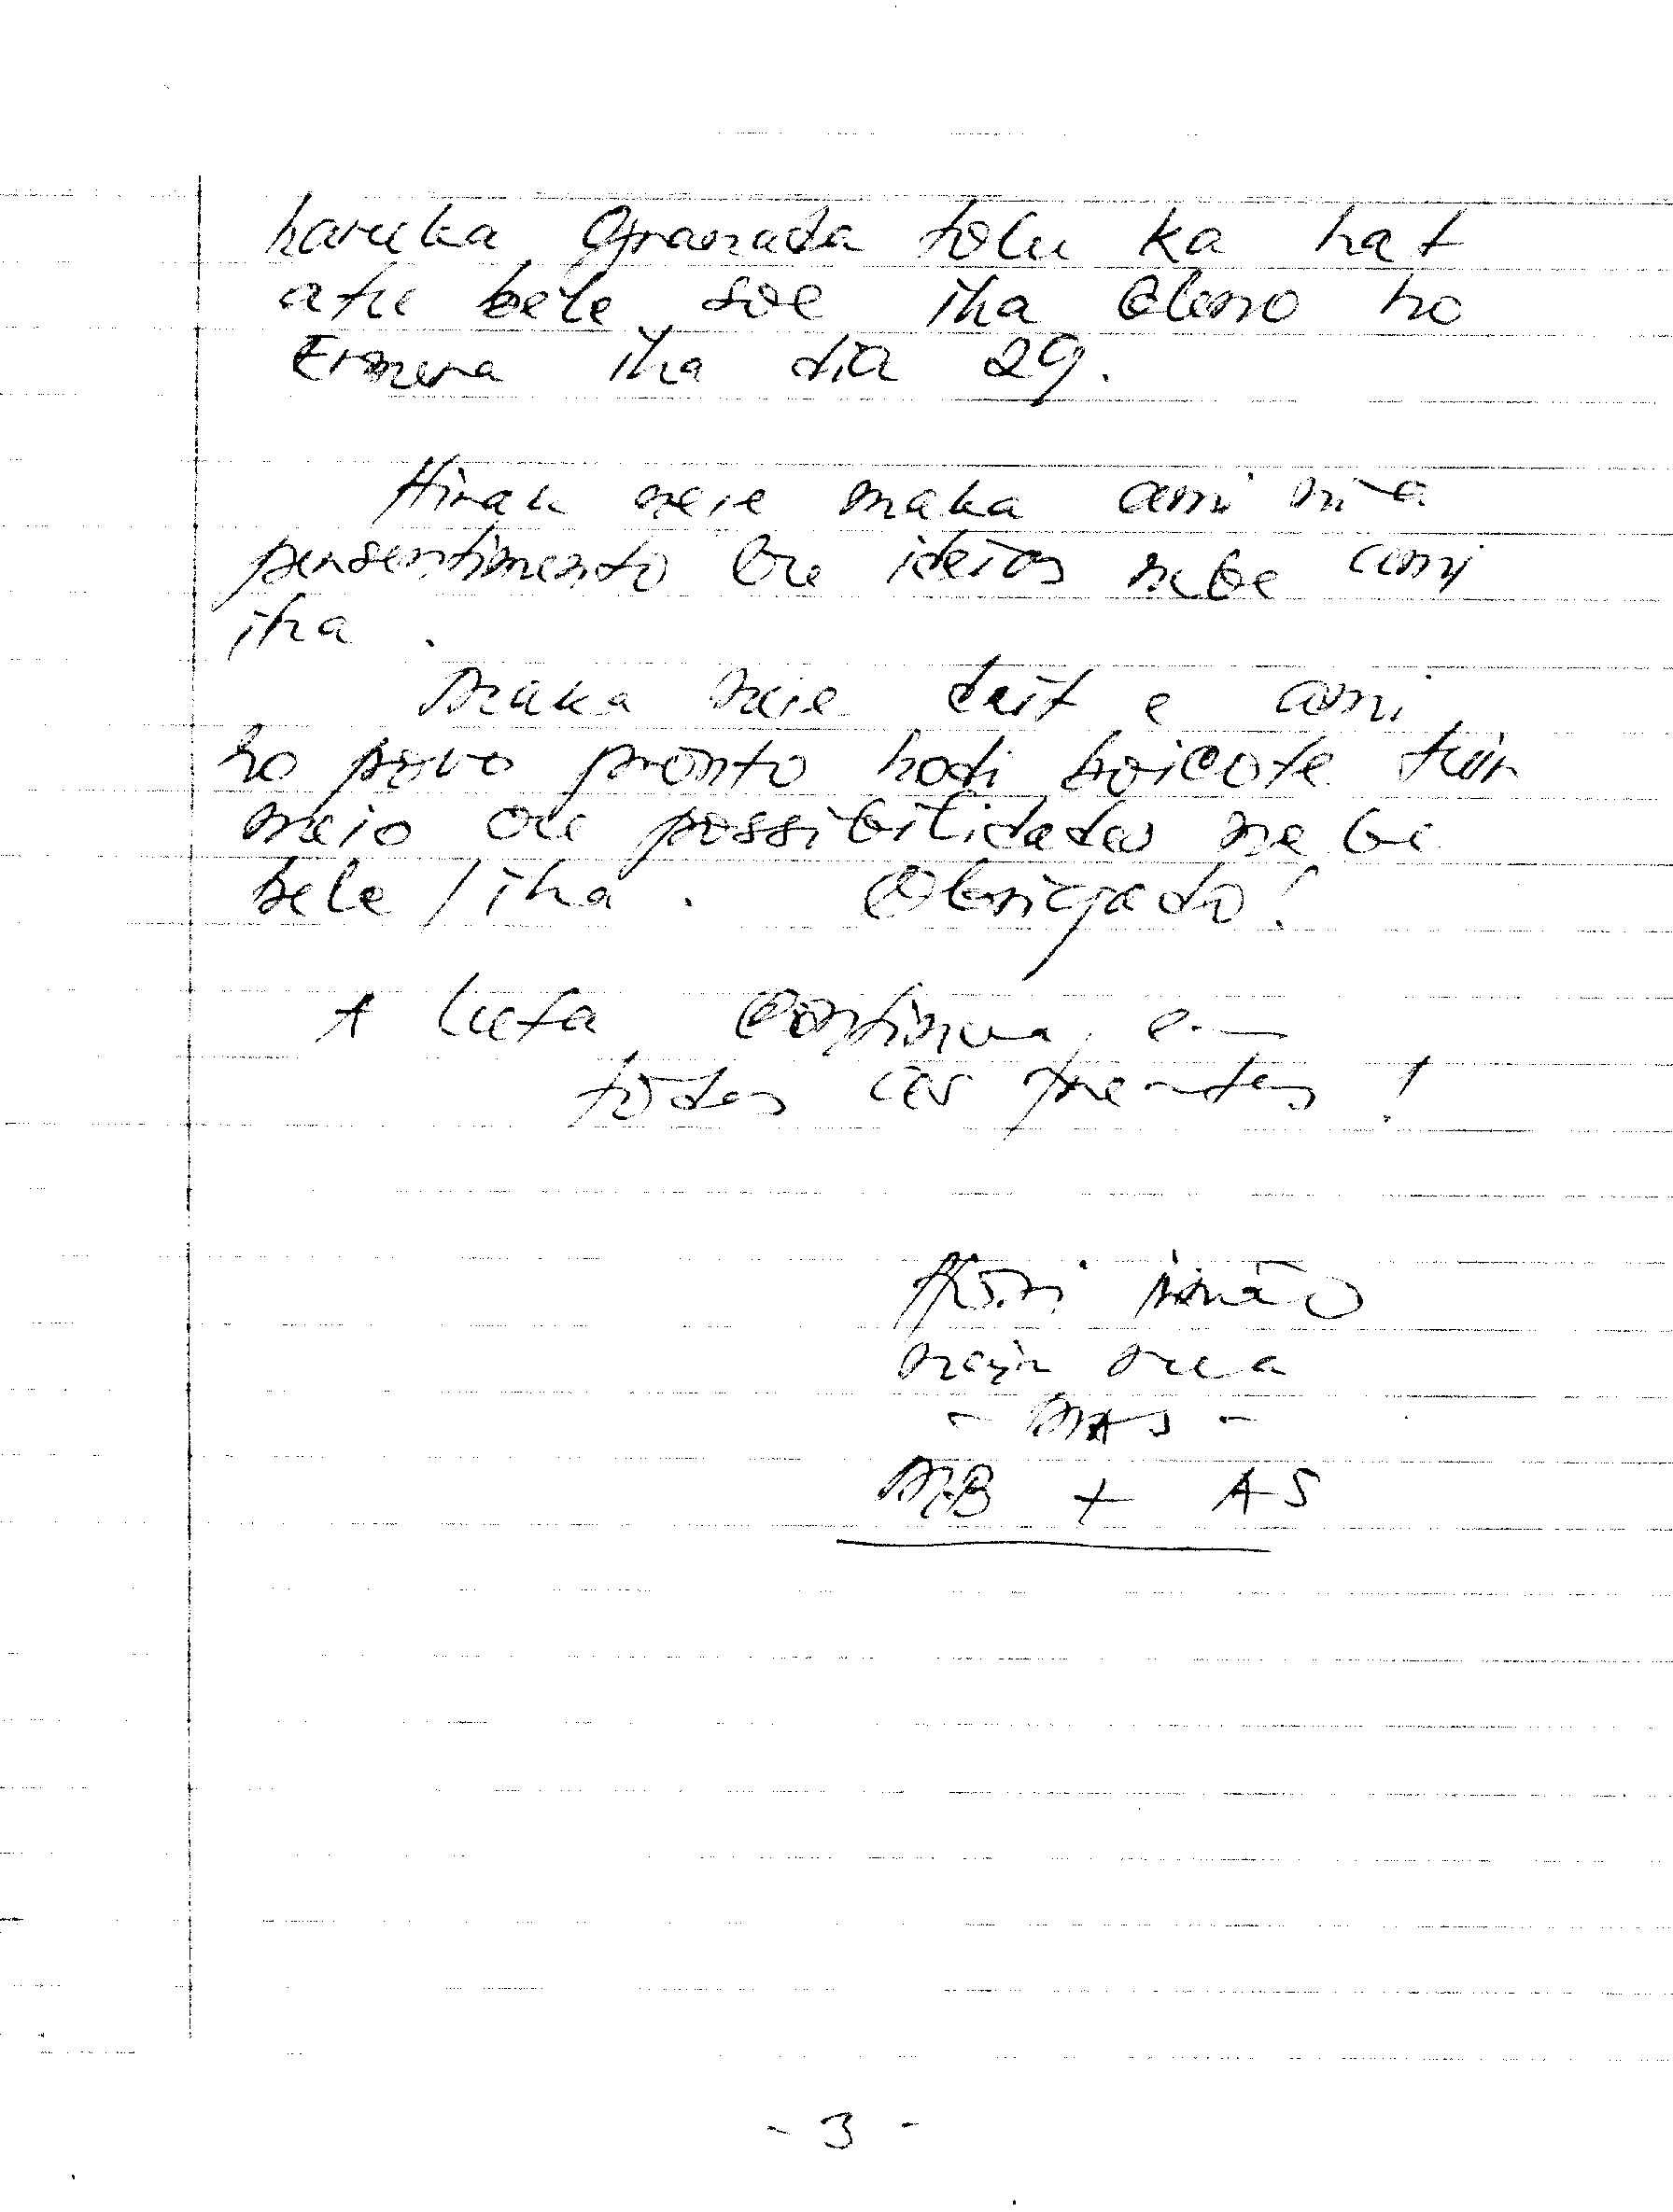 haruka Granada tolu ka hat
atu bele soe iha Gleno ho
Ermera iha dia 29.
Hirak neie maka ami nia
pensentimento ou ideias nebe ami
iha.
Maka neie deit e ami
ho povo pronto hodi boicote tuir
meio ou possibilidades nebe
bele / iha. Obrigado!
A luta continua, em
todas as frentes!
Hosi irmão
nain rua
- MAS -
MB + AS
- 3 -